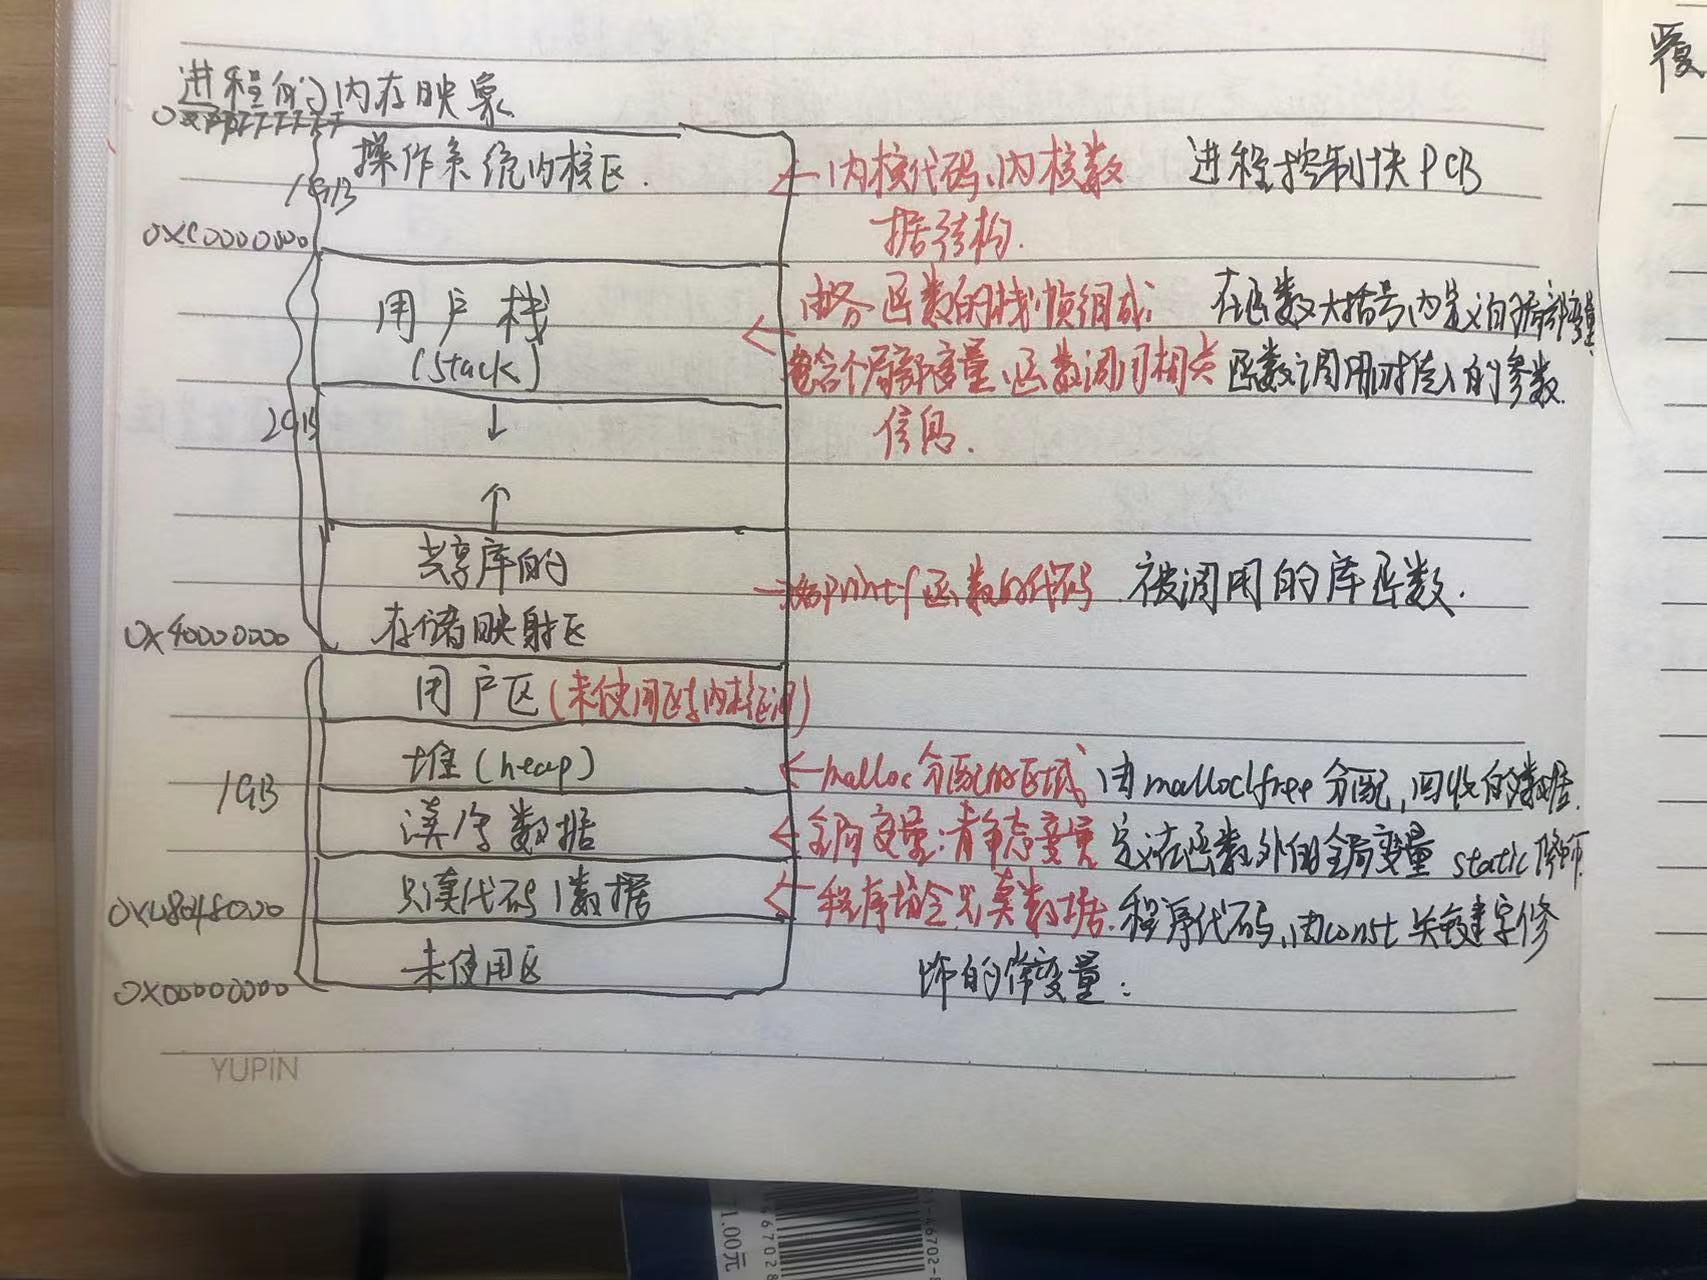 进程的内存映象
0xFFFFFFFF
操作系统内核区.
←内核代码、内核数
据结构.
进程控制快PCB
1GB
0XC0000000
用户栈
(Stack)
由各函数的栈帧组成:
包含个局部变量、函数调用相关
信息.
在函数大括号内定义的局部变量
函数调用时传入的参数.
2GB
↓
↑
共享库的
存储映射区
如printf函数的代码
被调用的库函数.
0X40000000
用户区(未使用区
堆(heap)
←malloc分配的区域
由malloc/free分配,回收的数据.
1GB
读/写数据
←全局变量:静态变量
定义在函数外的全局变量 static修饰.
只读代码/数据
←程序 只读数据.
程序代码,由const关键字修
饰的常变量:
0X08048000
未使用区
0X00000000
YUPIN
覆
1.00元